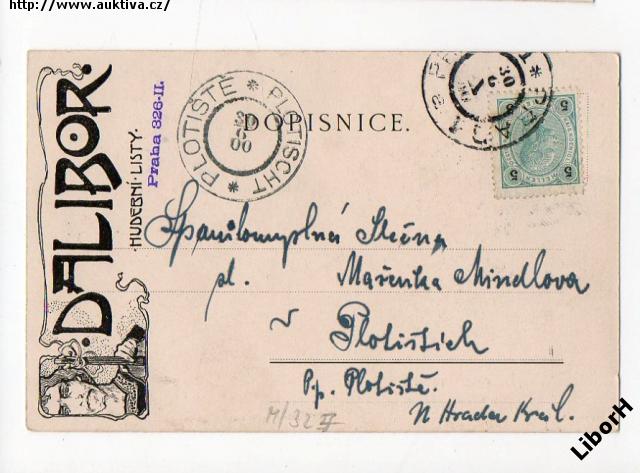 http://www.auktiva.cz/
DALIBOR.
HUDEBNÍ·LISTY·
Praha 826-II.
PLOTIŠTĚ * PLOTISCHT *
DOPISNICE.
5 5
5 5
Spanilomyslná Slečna
sl. Mařenka Mindlova
v
Plotištích
p.p. Plotiště.
N Hradec Král.
M/32
LiborH